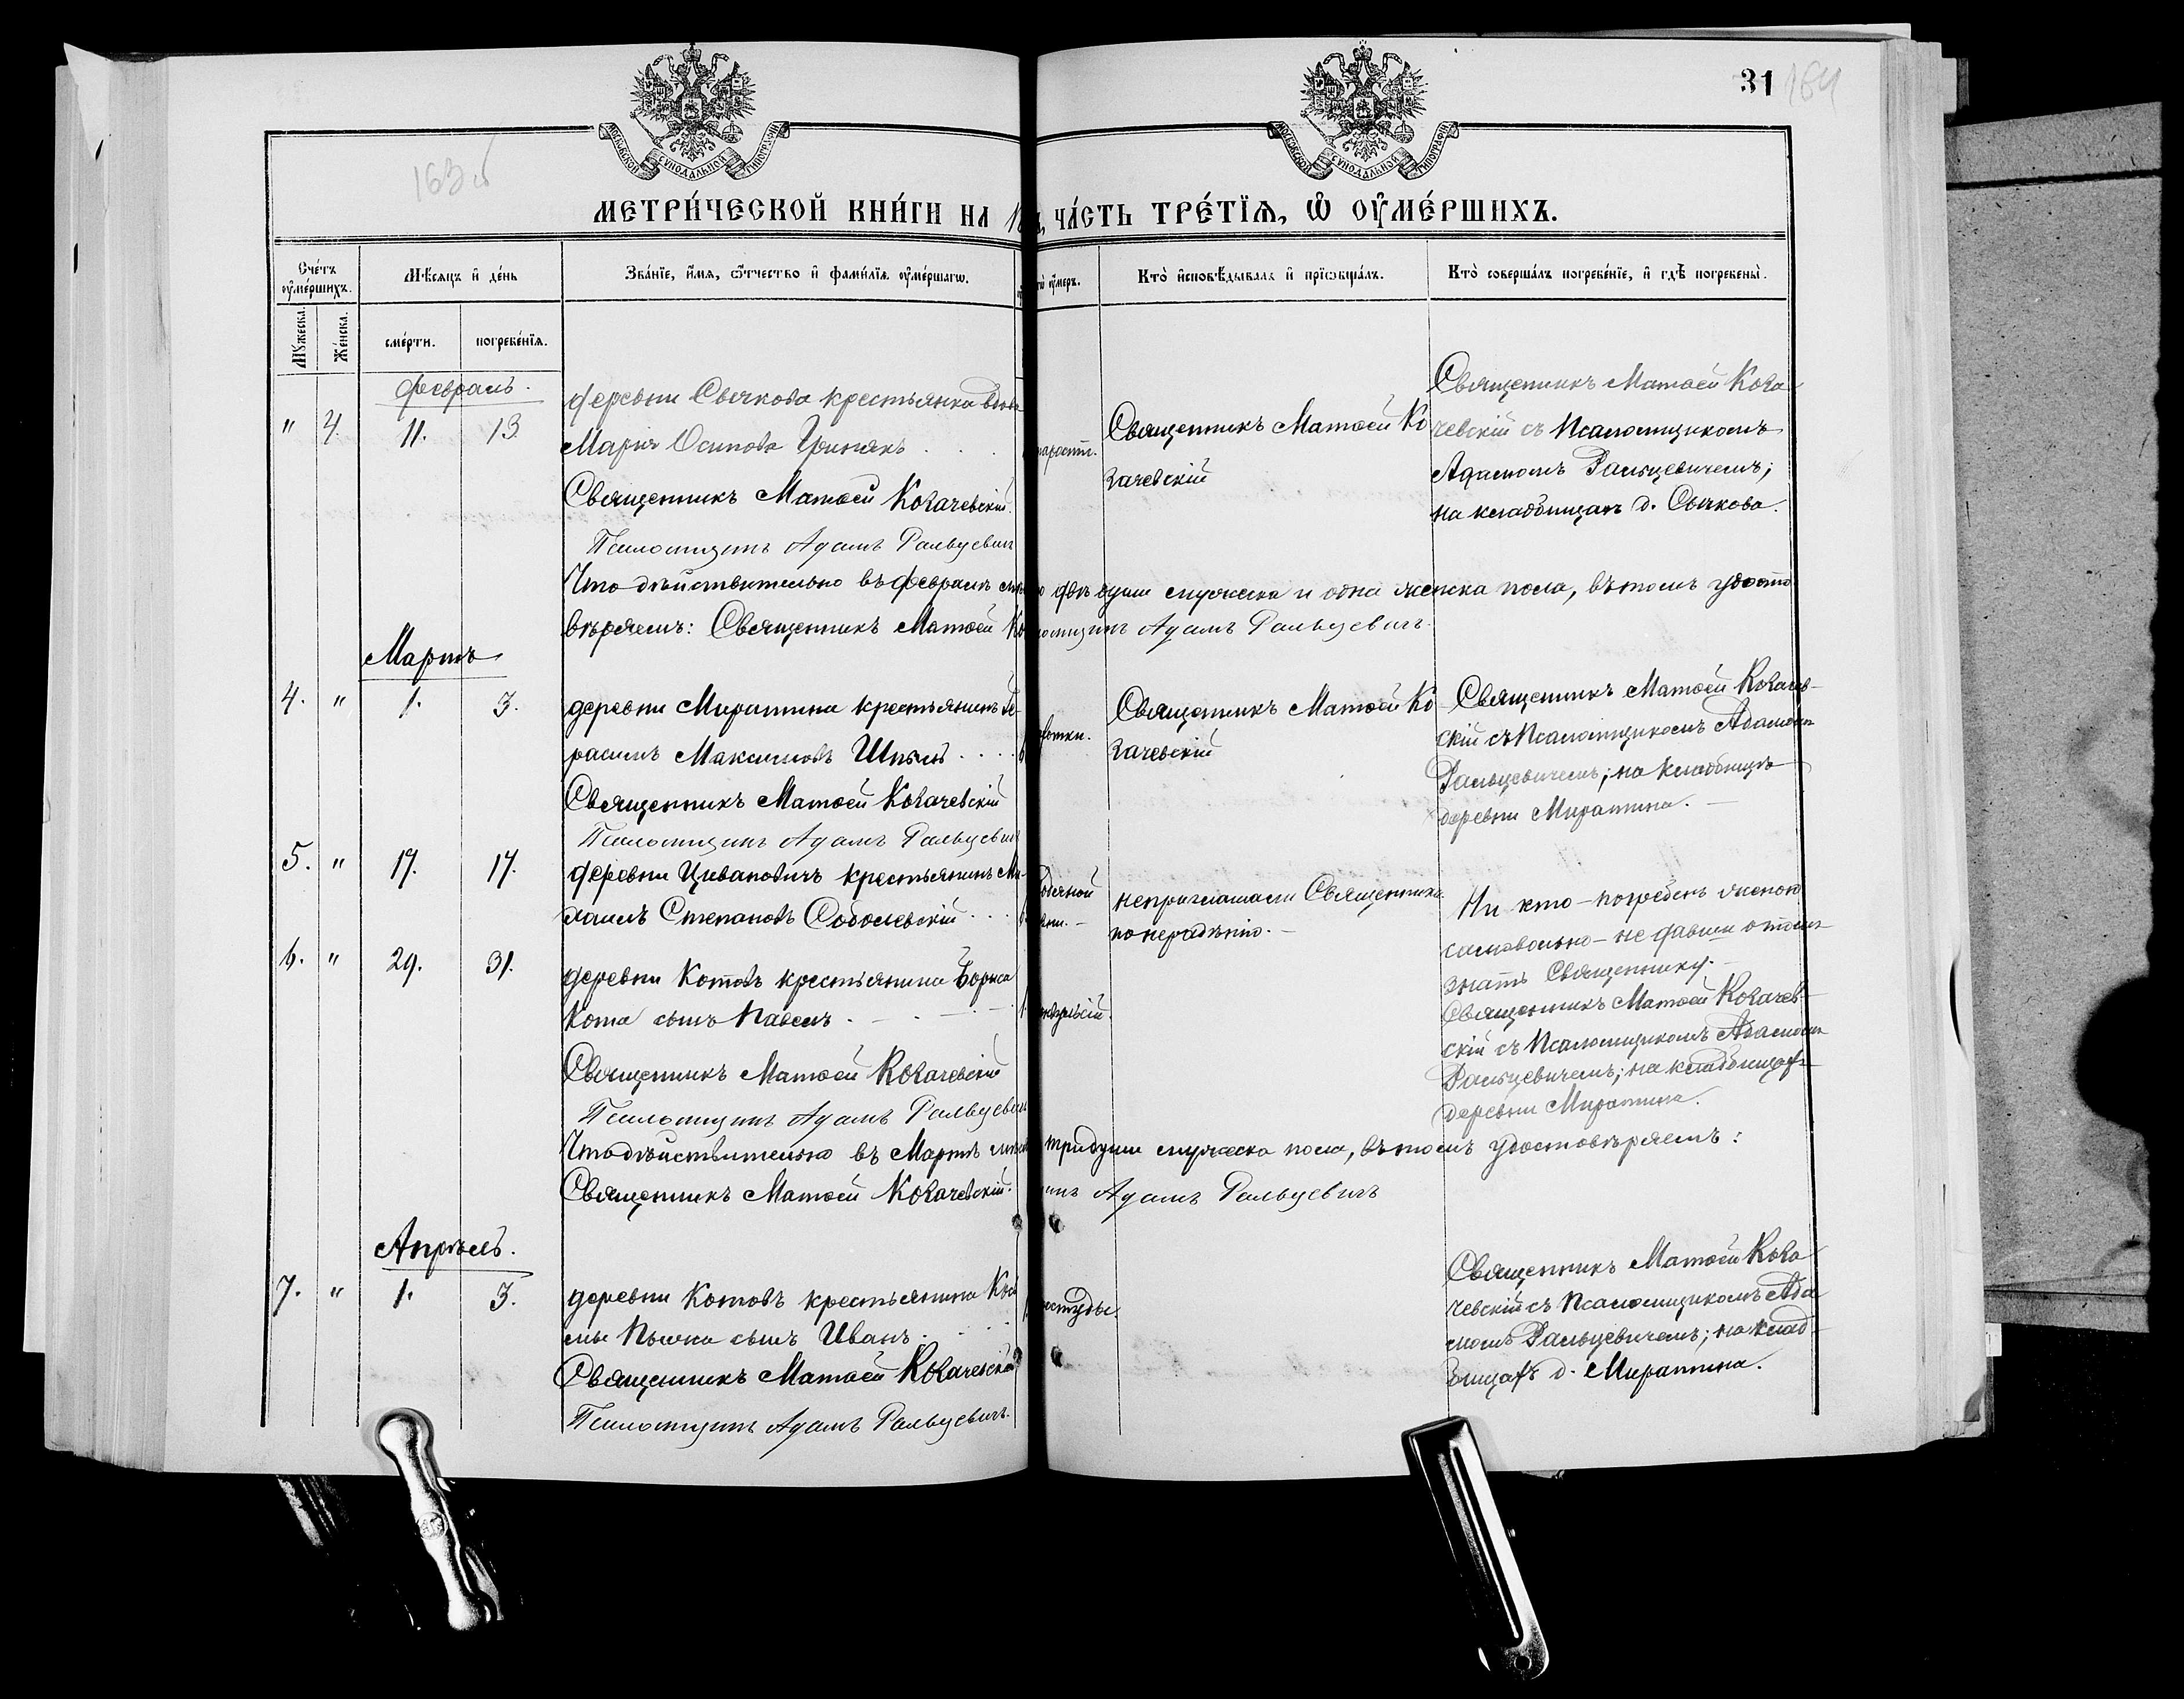 31 164
163 об
МОСКОВСКОЙ СУНОДАЛЬНОЙ ТИПОГРАФІИ
МОСКОВСКОЙ СУНОДАЛЬНОЙ ТИПОГРАФІИ
МЕТРИ́ЧЕСКОЙ КНИ́ГИ НА
ЧА́СТЬ ТРЕ́ТІѦ, Ѡ ОУ҆МЕ́РШИХЪ.
Сче́тъ оу҆ме́ршихъ.
Мѣ́сѧцъ и҆ де́нь
Зва́нїе, и҆́мѧ, ѻ҆́тчество и҆ фами́лїѧ оу҆ме́ршагѡ.
оу҆́меръ.
Кто̀ и҆сповѣ́дывалъ и҆ прїѡбща́лъ.
Кто̀ соверша́лъ погребе́нїе, и҆ гдѣ̀ погребены̀.
Мꙋ́жеска.
Же́нска.
сме́рти.
погребе́нїѧ.
Февраль.
" 4. 11. 13.
деревни Сычкова крестьянка вдова
Марія Осипова Гриняк
Священникъ Матөей Козачевскій.
Псаломщикъ Адамъ Ральцевич
старости.
Священникъ Матөей Ко
зачевскій
Священникъ Матөей Коза
чевскій съ Псаломщикомъ
Адамомъ Ральцевичемъ;
на кладбищахъ д. Сычкова.
Что дѣйствительно въ Февралѣ двѣ души мужеска и одна женска пола, въ томъ удосто
вѣряемъ: Священникъ Матөей Ко ломщикъ Адамъ Ральцевичъ.
Мартъ
4. " 1. 3.
деревни Миратина крестьянинъ Ге-
расимъ Максимовъ Шпыль
Священникъ Матөей Козачевскій
Псаломщикъ Адамъ Ральцевич
Священникъ Матөей Ко
зачевскій
Священникъ Матөей Козачев-
скій съ Псаломщикомъ Адамомъ
Ральцевичемъ; на кладбищѣ
деревни Миратина.
5. " 17. 17.
деревни Цивановичъ крестьянинъ Ми-
хаилъ Степановъ Соболевскій
неприглашали Священника
по нерадѣнію.
Ни кто - погребенъ женою
самовольно - не давши о томъ
знать Священнику.
6. " 29. 31.
деревни Котовъ крестьянина Бориса
Кота сынъ Павелъ
Священникъ Матөей Козачевскій
Псаломщикъ Адамъ Ральцевич
Священникъ Матөей Козачев-
скій съ Псаломщикомъ Адамомъ
Ральцевичемъ; на кладбищахъ
деревни Миратина.
Что дѣйствительно въ Мартѣ три души мужеска пола, въ томъ удостовѣряемъ:
Священникъ Матөей Козачевскій. Адамъ Ральцевичъ
Апрѣль.
7. " 1. 3.
деревни Котовъ крестьянина Кос
мы Пышка сынъ Иванъ
Священникъ Матөей Козачевскій
Псаломщикъ Адамъ Ральцевичъ.
простуды.
Священникъ Матөей Коза
чевскій съ Псаломщикомъ Ада
момъ Ральцевичемъ; на клад-
бищахъ д. Миратина.